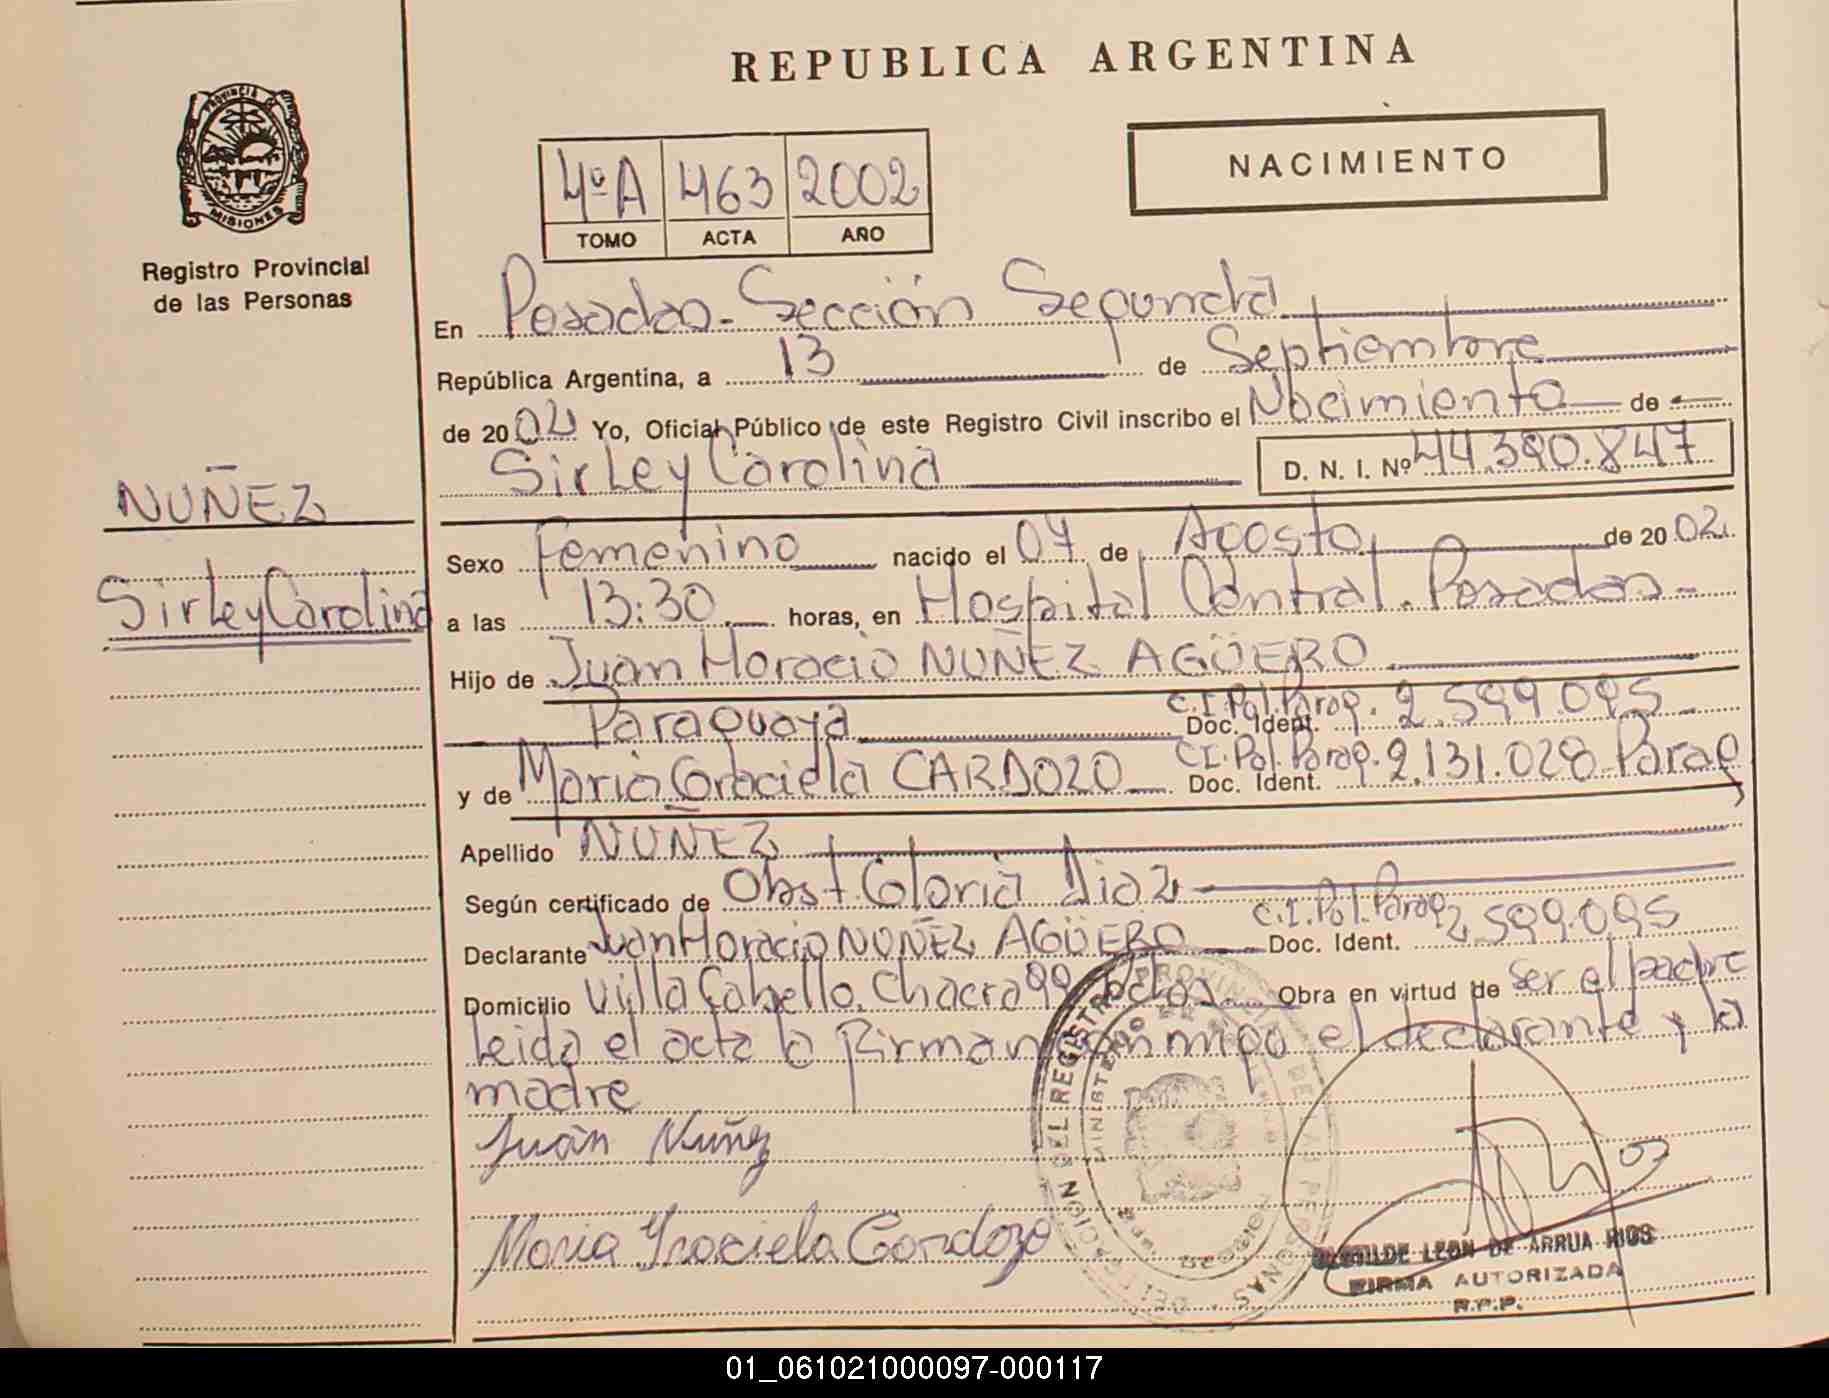 REPUBLICA ARGENTINA
PROVINCIA DE
MISIONES
Registro Provincial
de las Personas
4ºA 463 2002
TOMO ACTA AÑO
NACIMIENTO
En Posadas - Sección Segunda
República Argentina, a 13 de Septiembre
de 2002 Yo, Oficial Público de este Registro Civil inscribo el Nacimiento de
Sirley Carolina D. N. I. Nº 44.390.847
NUÑEZ
Sirley Carolina
Sexo Femenino nacido el 07 de Agosto de 2002
a las 13:30 horas, en Hospital Central. Posadas-
Hijo de Juan Horacio NUÑEZ AGÜERO
Paraguaya C.I.Pol.Parag. Doc. Ident. 2.599.095
y de Maria Graciela CARDOZO C.I.Pol.Parag. Doc. Ident. 2.131.028 Parag
Apellido NUÑEZ
Según certificado de Obst. Gloria Diaz
Declarante Juan Horacio NUÑEZ AGÜERO C.I.Pol.Parag Doc. Ident. 2.599.095
Domicilio Villa Cabello. Chacra 99 Pdas. Obra en virtud de ser el padre
leida el acta la firman conmigo el declarante y la
madre
Juan Nuñez
Maria Graciela Cardozo
LEON DE ARRUA RIOS
FIRMA AUTORIZADA
R.P.P.
01_061021000097-000117